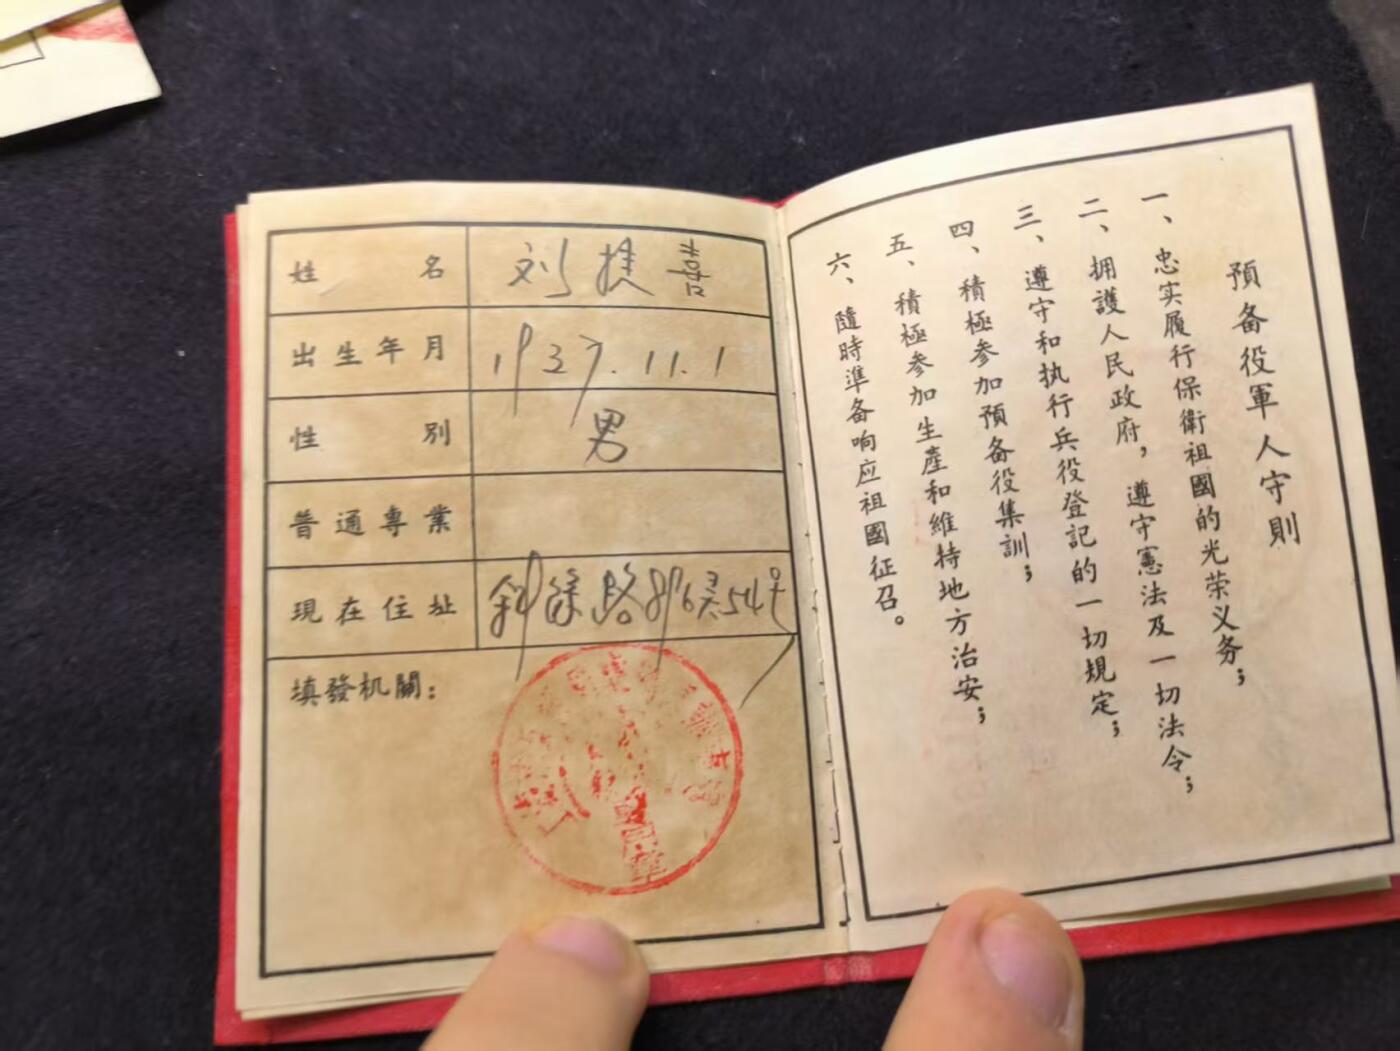 姓名 刘捷喜
出生年月 1937.11.1
性别 男
普通專業
現在住址 斜徐路896弄54号
填發机關：
預备役軍人守則
一、忠实履行保衛祖國的光荣义务；
二、拥護人民政府，遵守憲法及一切法令；
三、遵守和执行兵役登記的一切規定；
四、積極参加預备役集訓；
五、積極参加生產和維持地方治安；
六、隨時準备响应祖國征召。